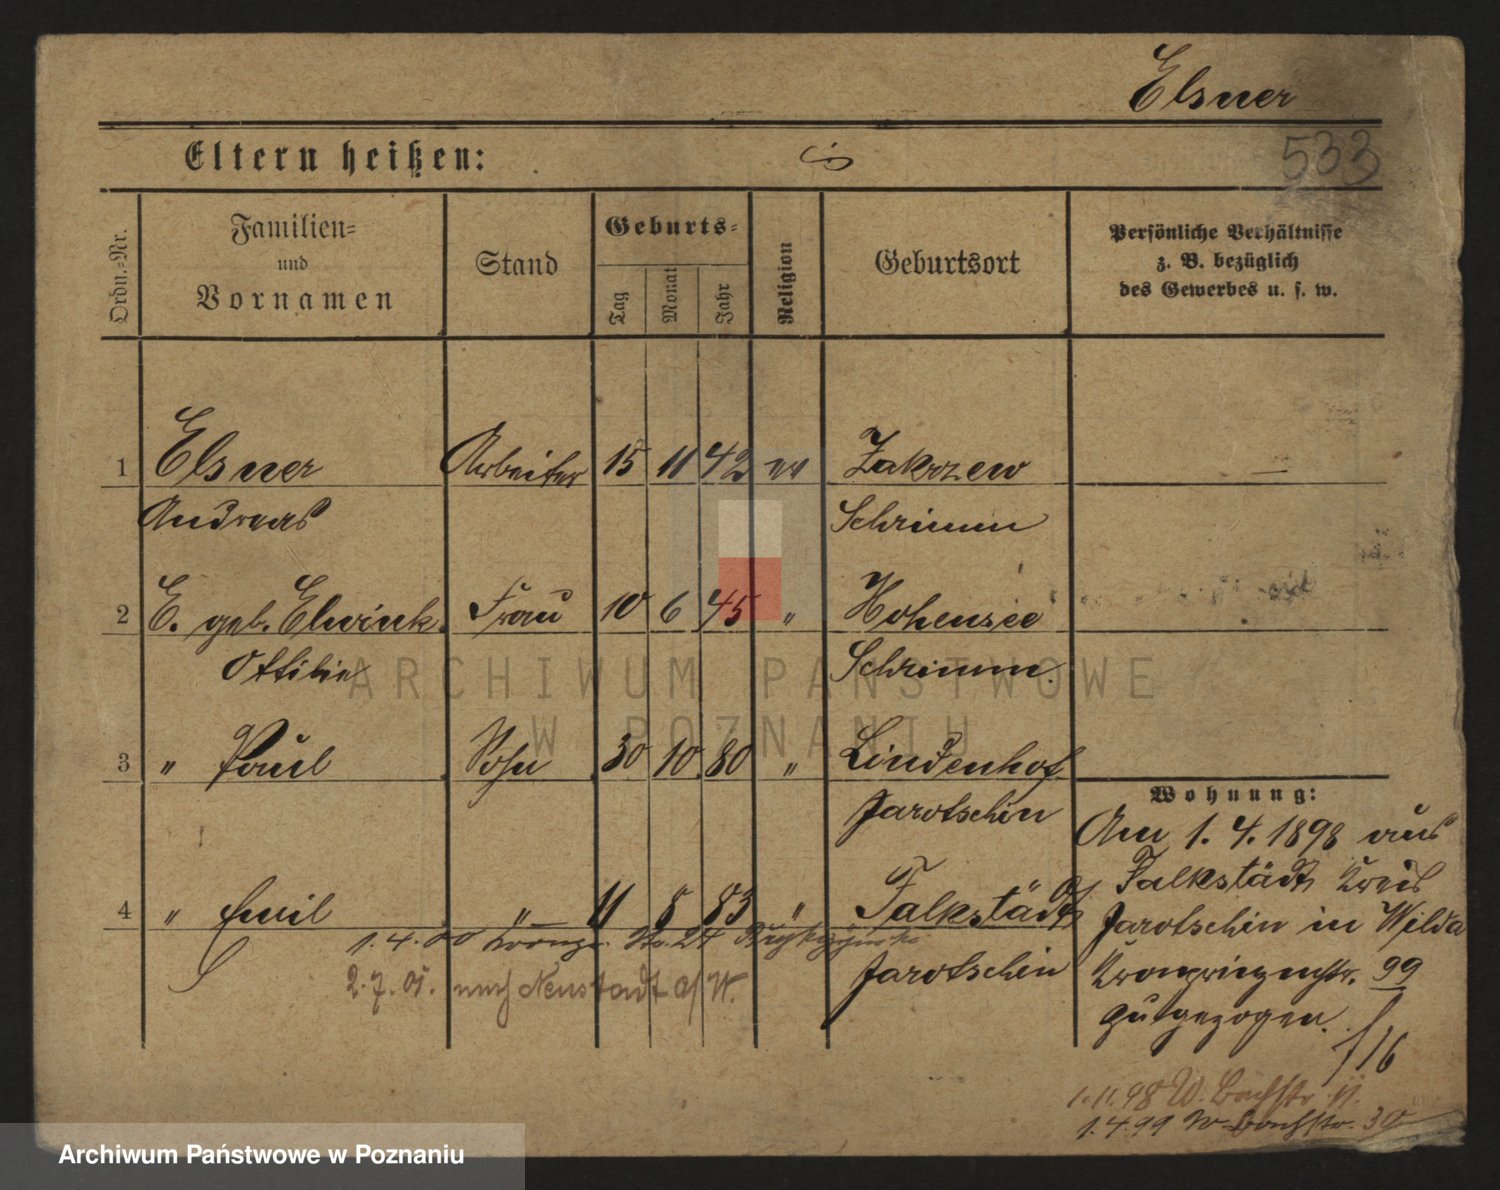 Elsner
533
Eltern heißen:
Ordn.-Nr.
Familien-
und
Vornamen
Stand
Geburts-
Tag
Monat
Jahr
Religion
Geburtsort
Persönliche Verhältnisse
z. B. bezüglich
des Gewerbes u. s. w.
1 Elsner Arbeiter 15 11 42 ev Zakrzew
Andreas Schrimm
2 E. geb. Elwink Frau 10 6 45 " Hohensee
Ottilie Schrimm.
3 " Paul Sohn 30 10 80 " Lindenhof
Jarotschin
4 " Emil " 11 8 83 " Falkstädt
Jarotschin
1.4.00 Kronpr. No. 24
2.7.01. nach Neustadt a/W.
Wohnung:
Am 1.4.1898 aus
Falkstädt Kreis
Jarotschin in Wilda
Kronprinzenstr. 99
zugezogen.
f 16
1.11.98 W. Bachstr 11.
1.4.99 W. Bachstr. 30
ARCHIWUM PAŃSTWOWE
W POZNANIU
Archiwum Państwowe w Poznaniu